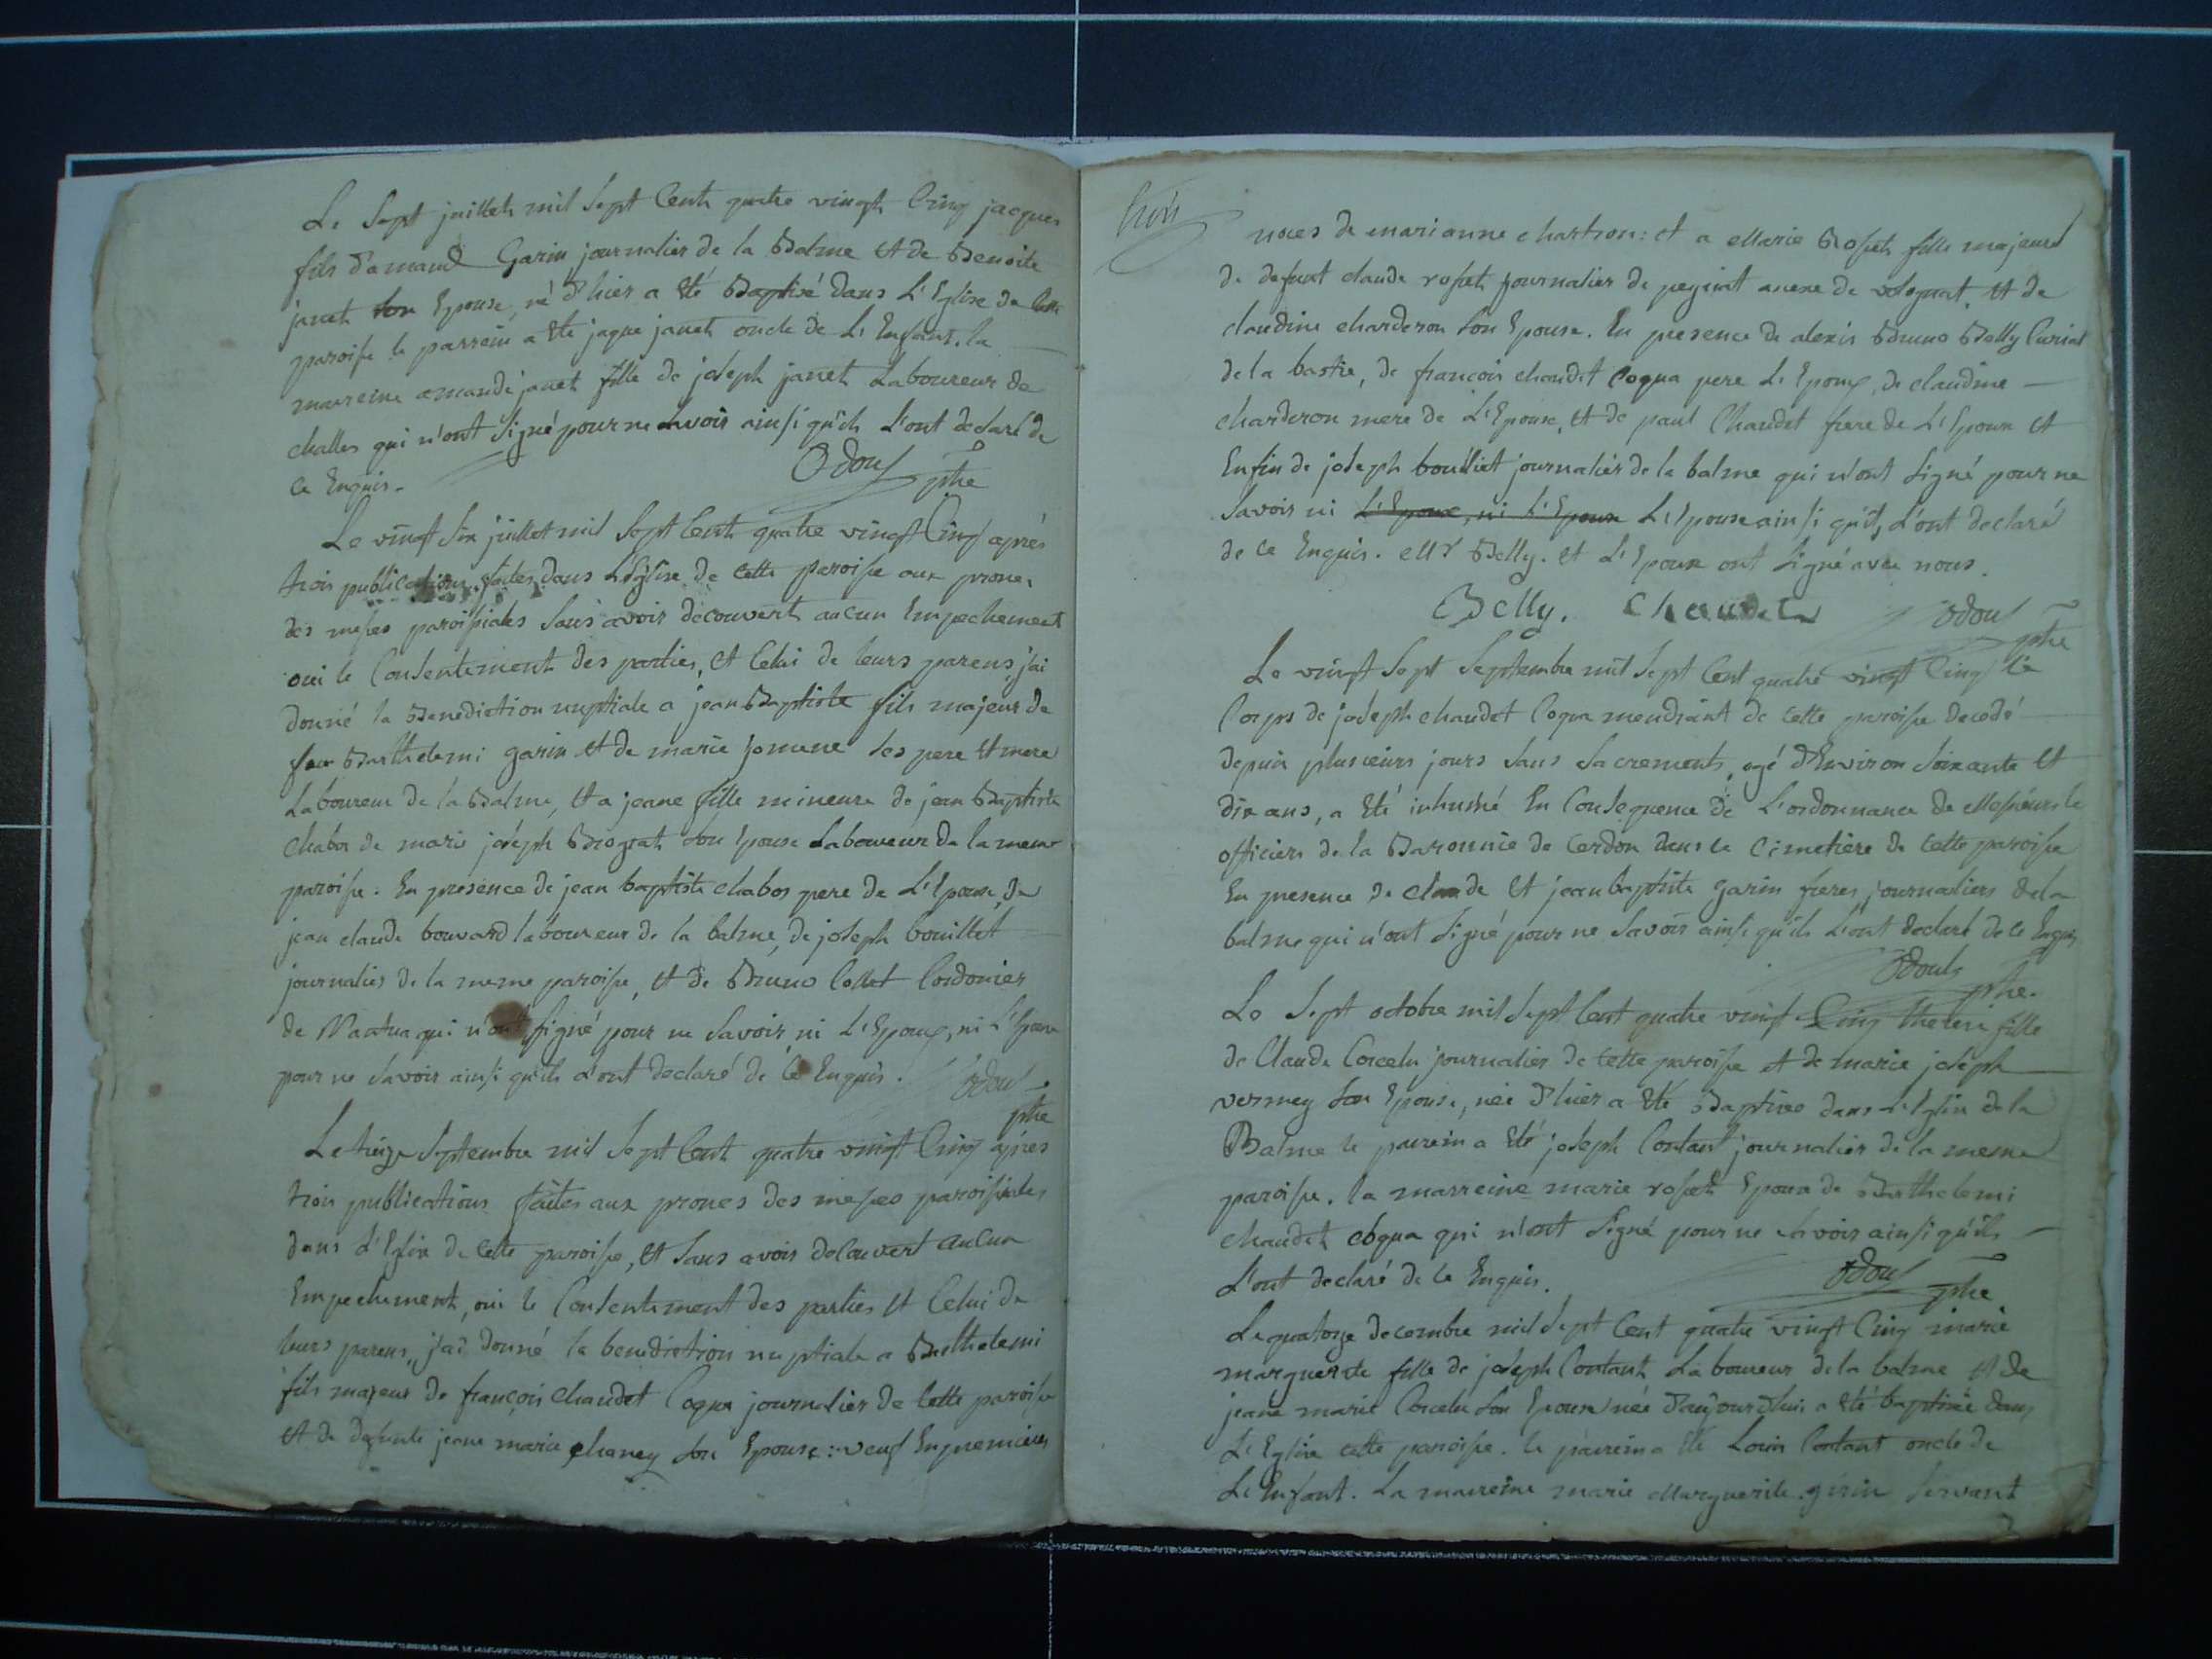 Le Sept juillet mil Sept Cent quatre vingt Cinq jacques
fils d'amand Garin journalier de la Balme et de Benoite
janet son Epouse, né d'hier a été Baptisé dans L'Eglise de cette
paroisse le parrein a été jaque janet oncle de L'Enfant. la
marreine amande janet fille de joseph janet Laboureur de
challes qui n'ont Signé pour ne Savoir ainsi qu'ils L'ont declaré de
ce Enquis.
Odoul ptre
Le vingt Six juillet mil Sept Cent quatre vingt Cinq aprés
trois publications faites dans L'Eglise de cette paroisse aux prones
des messes paroissiales Sans avoir decouvert aucun Empechement
oui le Consentement des parties, et Celui de leurs parens, j'ai
donné la Benediction nuptiale a jean Baptiste fils majeur de
feu Barthelemi garin et de marie jomene ses pere et mere
Laboureur de la Balme, et a jeane fille mineure de jean Baptiste
chabos de marie joseph Brograt son Epouse Laboureur de la meme
paroisse. En presence de jean baptiste chabos pere de L'Epouse, de
jean claude bouvard laboureur de la balme, de joseph bouillet
journalier de la meme paroisse, et de Bruno Collet Cordonier
de Nantua qui n'ont signé pour ne Savoir, ni L'Epoux, ni L'Epouse
pour ne Savoir ainsi qu'ils L'ont declaré de ce Enquis.
Odoul ptre
Le treize Septembre mil Sept Cent quatre vingt Cinq apres
trois publications faites aux prones des messes paroissiales
dans L'Eglise de cette paroisse, et Sans avoir decouvert aucun
Empechement, oui le Consentement des parties et Celui de
leurs parens, j'ai donné la benediction nuptiale a Barthelemi
fils majeur de françois chaudet Coqua journalier de cette paroisse
et de defunte jeane marie chaney son Epouse: veuf En premieres
trois
noces de marianne chartron: et a Marie Rosset fille majeure
de defunt claude rosset journalier de peyriat anexe de volognat, et de
claudine charderon son Epouse. En presence de alexis Bruno Belly Curial
de la bastie, de françois chaudet Coqua pere de L'Epoux, de claudine
charderon mere de L'Epouse, et de paul Chaudet frere de L'Epoux et
Enfin de joseph bouilliet journalier de la balme qui n'ont Signé pour ne
Savoir ni L'Epoux, ni L'Epouse L'Epouse ainsi qu'ils L'ont declaré
de ce Enquis. Mr Belly. et L'Epoux ont Signé avec nous.
Belly. Chaudet Odoul ptre
Le vingt Sept Septembre mil Sept Cent quatre vingt Cinq le
Corps de joseph chaudet Coqua mendiant de cette paroisse decedé
depuis plusieurs jours Sans Sacrements, agé d'Environ Soixante et
dix ans, a été inhumé En Consequence de L'ordonnance de Messieurs les
officiers de la Baronnie de Cerdon dans le Cimetiere de cette paroisse
En presence de claude et jean baptiste garin freres journaliers de la
balme qui n'ont Signé pour ne Savoir ainsi qu'ils L'ont declaré de ce Enquis
Odoul ptre.
Le Sept octobre mil Sept Cent quatre vingt Cinq therese fille
de Claude Corcelu journalier de cette paroisse et de marie joseph
vermey son Epouse, née d'hier a été Baptisée dans L'Eglise de la
Balme le parrein a été joseph Contant journalier de la meme
paroisse. la marreine marie rosset Epouse de Barthelemi
chaudet coqua qui n'ont Signé pour ne Savoir ainsi qu'ils
L'ont declaré de ce Enquis.
Odoul ptre
Le quatorze decembre mil Sept Cent quatre vingt Cinq marie
marguerite fille de joseph Contant Laboureur de la balme et de
jeane marie Corcelu son Epouse née d'aujourdhui a été baptisée dans
L'Eglise cette paroisse. le parrein a été Louis Contant oncle de
L'Enfant. La marreine marie Marguerite girin servant